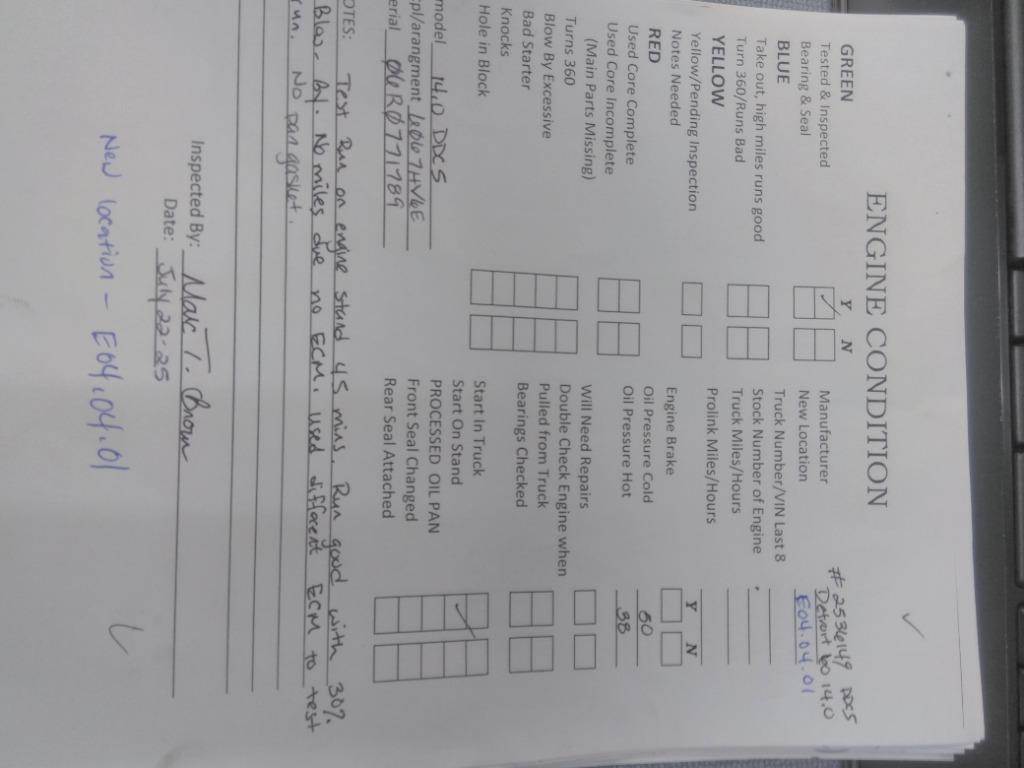 ENGINE CONDITION
# 2536149 DDC5
GREEN
Tested & Inspected
Bearing & Seal
BLUE
Take out, high miles runs good
Turn 360/Runs Bad
YELLOW
Yellow/Pending Inspection
Notes Needed
RED
Used Core Complete
Used Core Incomplete
(Main Parts Missing)
Turns 360
Blow By Excessive
Bad Starter
Knocks
Hole in Block
Y N
Manufacturer Detroit 60 14.0
New Location E04.04.01
Truck Number/VIN Last 8
Stock Number of Engine
Truck Miles/Hours
Prolink Miles/Hours
Y N
Engine Brake
Oil Pressure Cold 50
Oil Pressure Hot 38
Will Need Repairs
Double Check Engine when
Pulled from Truck
Bearings Checked
Start In Truck
Start On Stand
PROCESSED OIL PAN
Front Seal Changed
Rear Seal Attached
model 14.0 DDC5
pl/arangment 6067HV6E
erial 06R0771789
OTES: Test Run on engine stand 45 mins. Run good with 30%
Blow-by. No miles due no ECM. used different ECM to test
run. No pan gasket.
Inspected By:
Date: July 22-25
New location - E04.04.01